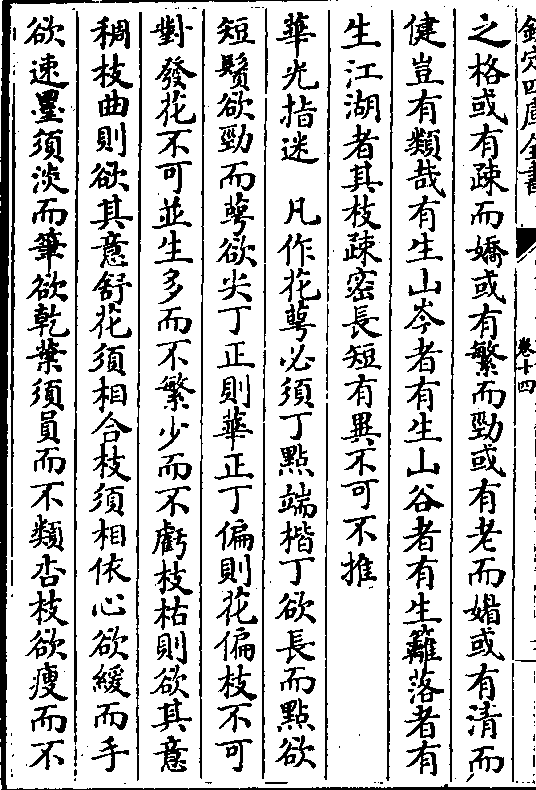 欽定四庫全書
卷十四
之格或有疎而嬌或有繁而勁或有老而媚或有清而
健豈有類哉有生山岑者有生山谷者有生籬落者有
生江湖者其枝疎密長短有異不可不推
華光指迷　凡作花萼必須丁點端楷丁欲長而點欲
短鬚欲勁而萼欲尖丁正則華正丁偏則花偏枝不可
對發花不可並生多而不繁少而不虧枝枯則欲其意
稠枝曲則欲其意舒花須相合枝須相依心欲緩而手
欲速墨須淡而筆欲乾葉須員而不類杏枝欲瘦而不